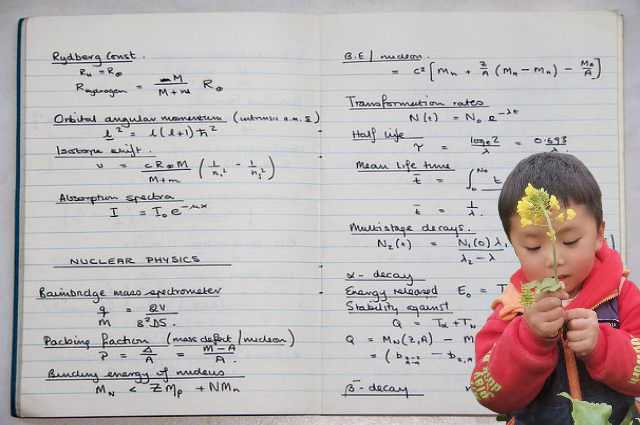 Rydberg Const.
R∞ = R∞
R hydrogen = M / M+m R∞
Orbital angular momentum (intrinsic a.m. s)
l² = l(l+1)ħ²
Isotope shift.
υ = cR∞M / M+m (1/n₁² - 1/n₂²)
Absorption spectra
I = I₀e^-μx
NUCLEAR PHYSICS
Bainbridge mass spectrometer
q/M = QV / B²DS.
Packing fraction (mass defect/nucleon)
P = Δ/A = M-A / A.
Binding energy of nucleus
M_N < ZMp + NMn
B.E / nucleon.
= c² [Mn + Z/A (MH - Mn) - Ma/A]
Transformation rates
N(t) = N₀ e^-λt
Half life
τ = loge2 / λ = 0.693 / λ
Mean Life time
t̄ = ∫₀^N₀ t
t̄ = 1/λ.
Multistage decays.
N₂(t) = N₁(0)λ₁ / λ₂-λ
α - decay
Energy released E₀ = T
Stability against
Q = Tα + TN
Q = MN(Z,A) - M
β⁻-decay